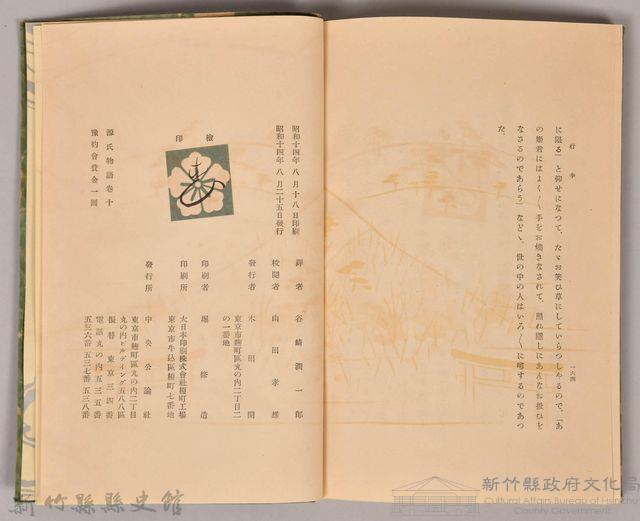 行幸
一六四
に限る」と仰せになつて、たゞお笑ひ草にしていらつしやるので、「あ
の姫君にはよく〳〵手をお燒きなされて、照れ隱しにあんなお扱ひを
なさるのであらう」など、世の中の人はいろ〳〵に噂するのであつ
た。
昭和十四年八月十八日印刷
昭和十四年八月二十五日發行
譯者 谷崎潤一郎
校閲者 山田孝雄
發行者
東京市麴町區丸の内二丁目二
の一番地
印刷者 堀修造
印刷所
大日本印刷株式會社榎町工場
東京市牛込區榎町七番地
發行所 中央公論社
東京市麴町區丸の内二丁目
丸の内ビルディング五八八區
振替東京三四番
電話丸の内五三五番
五三六番 五三七番 五三八番
檢印
源氏物語卷十
豫約會費金一圓
新竹縣縣史館
新竹縣政府文化局
Cultural Affairs Bureau of Hsinchu
County Government